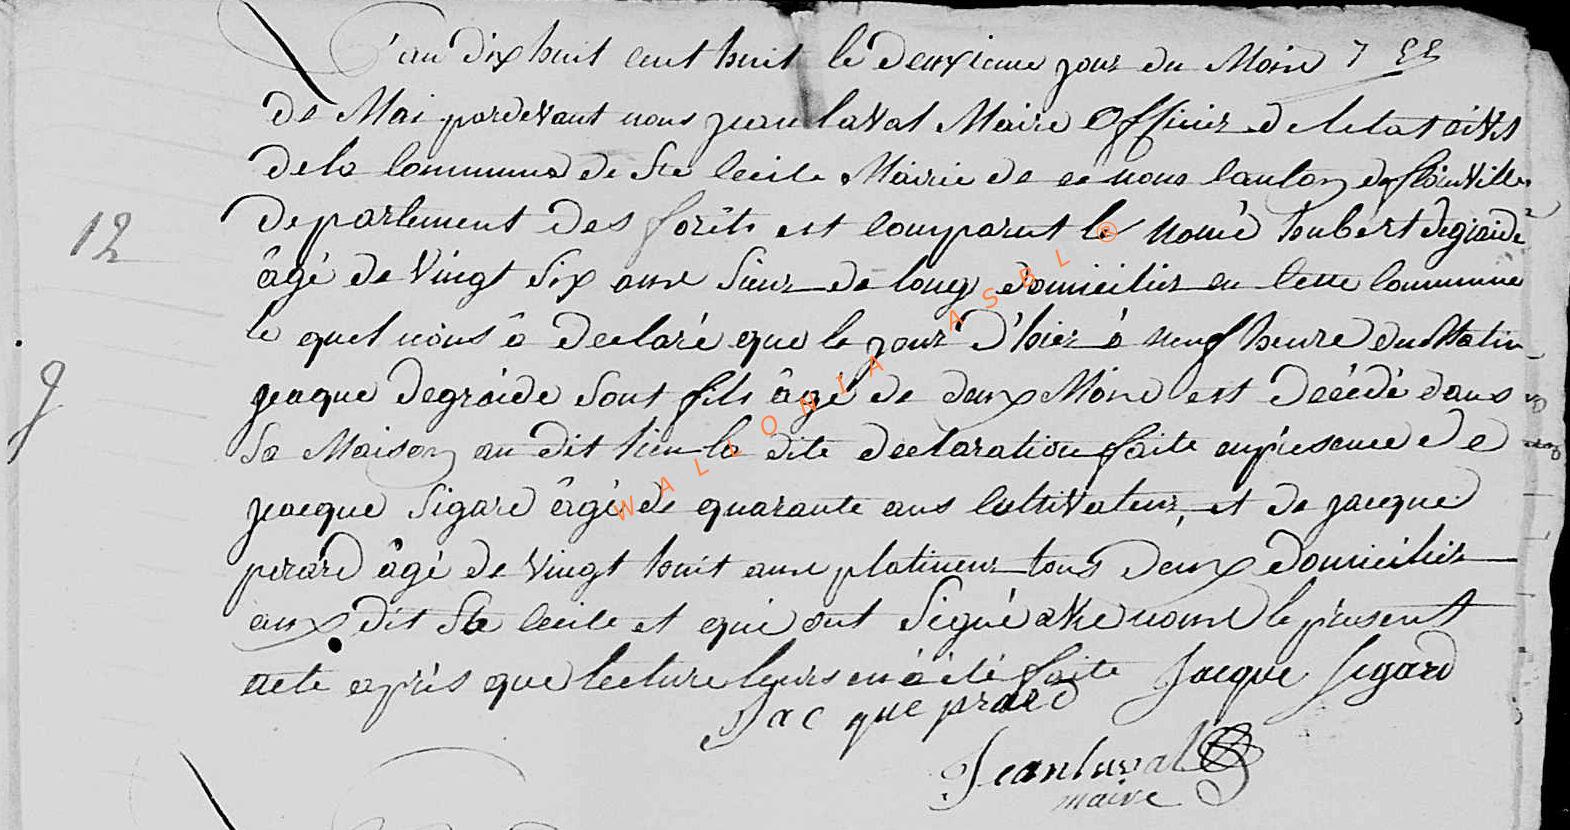 L'an dix huit cent huit le deuxieme jour du Mois
de Mai pardevant nous jean laval Maire Officier de letat civil
de la Commune de Ste Cecile Mairie de ce nom Canton de florenville
12
departement des forêts est comparut le nomé hubert degraide
âgé de vingt six ans Sieur de long domicilier en cette Commune
le quel nous â declaré que le jour d'hier â neuf heure du Matin
g
jeaque degraide sont fils âgé de deux Mois est Decédé dans
Sa Maison au dit lieu la dite declaration faite enpresence de
jacque Sigard âgé de quarante ans Cultivateur, et de jacque
pirard âgé de vingt huit ans platineur tous deux domicilier
aux dit Ste Cecile et qui ont Signé avec nous le present
acte après que lecture leurs en â été faite Jacque Sigard
Jacque prard
Jean laval
maire
WALLONIA ASBL ®